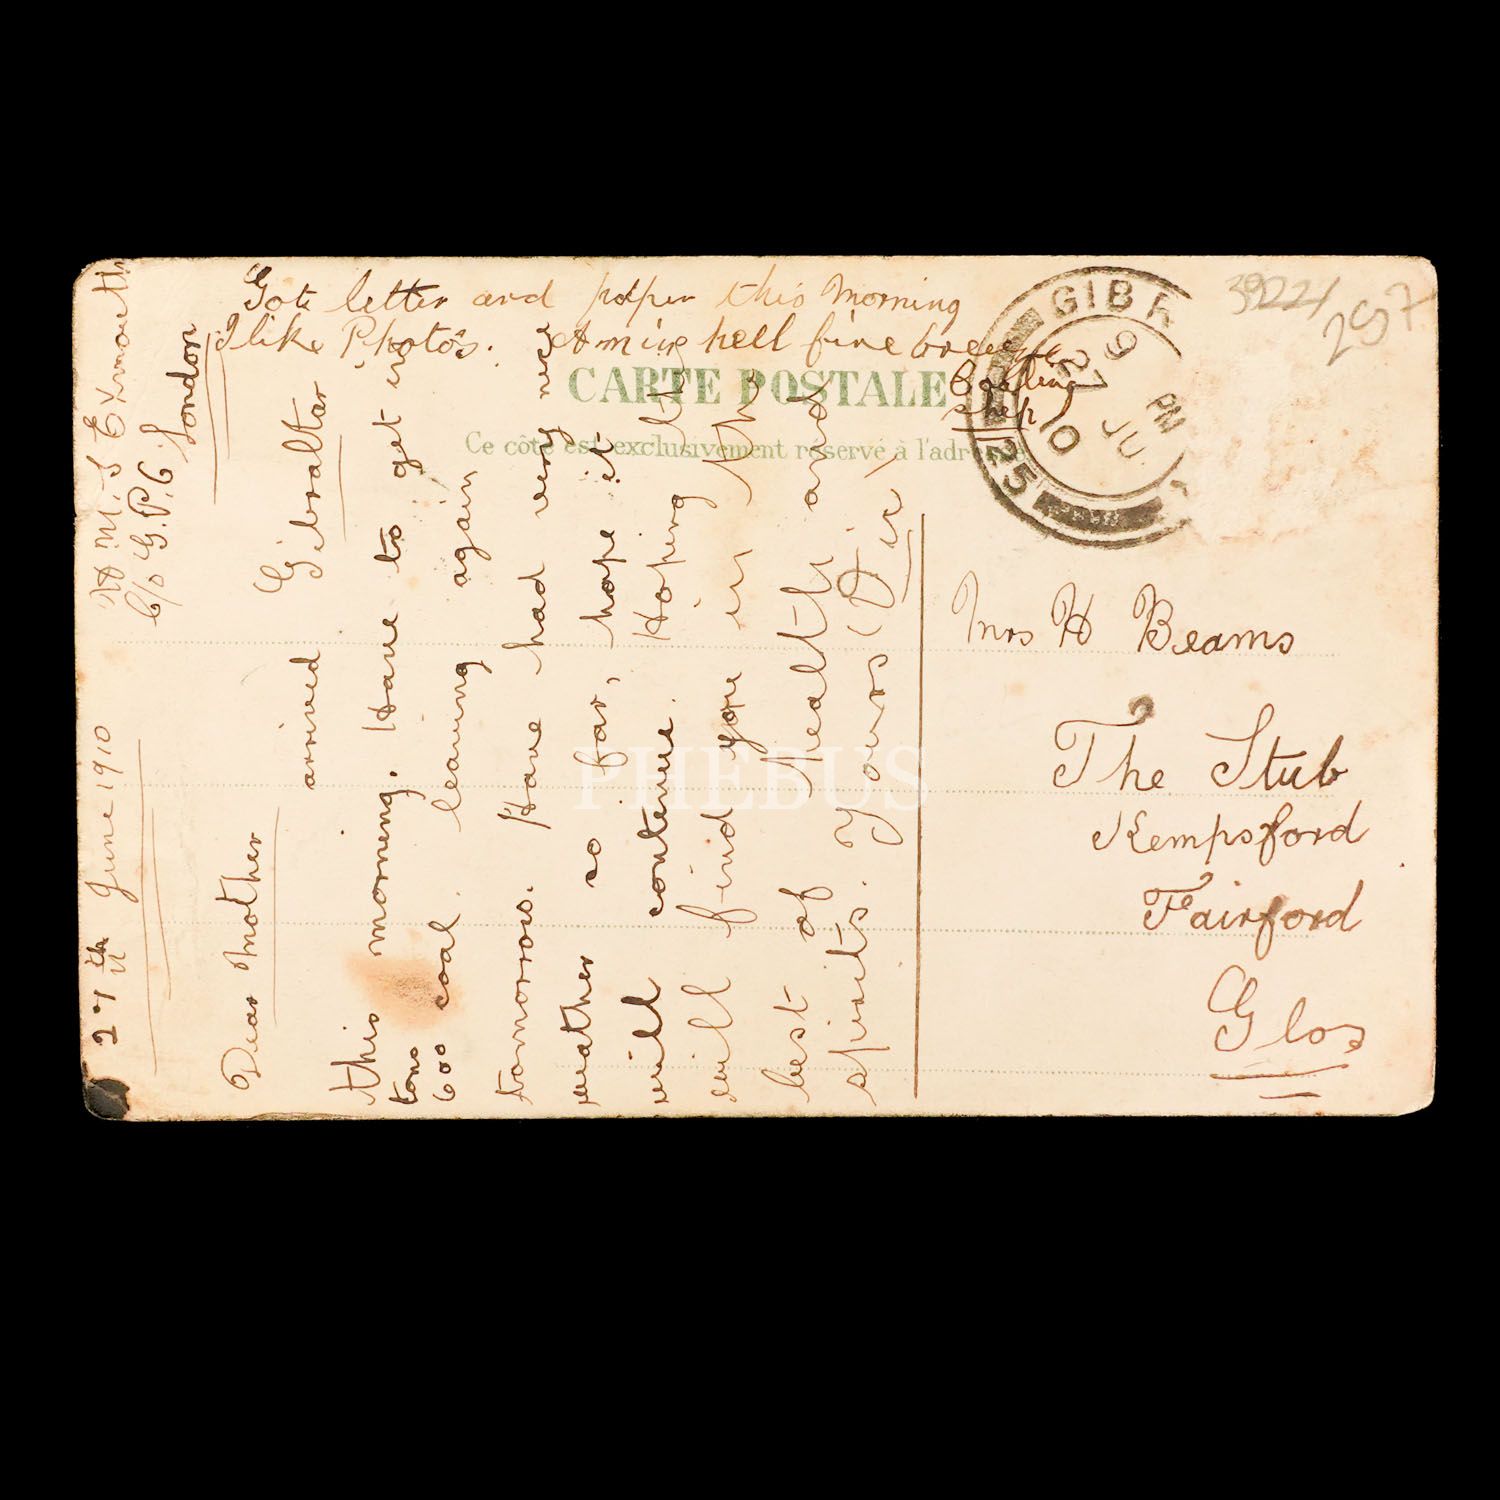 Gote letter and paper this morning
I like Photo's. Am in hell fine breeze
Coaling
ship
CARTE POSTALE
Ce côté est exclusivement réservé à l'adresse
GIBR
9 PM
27 JU
10
25
39221
257
H M. S Exmouth
C/o G.P.O
London
27th June 1910
Dear Mother
arrived Gibraltar
this morning. Have to get in
tons
600 coal. leaving again
tomorrow. Have had very nice
weather so far, hope it
will continue. Hoping
will find you in the
best of Health and
spirits. Yours
Mrs H Beams
The Stub
Kempsford
Fairford
Glos
PHEBUS